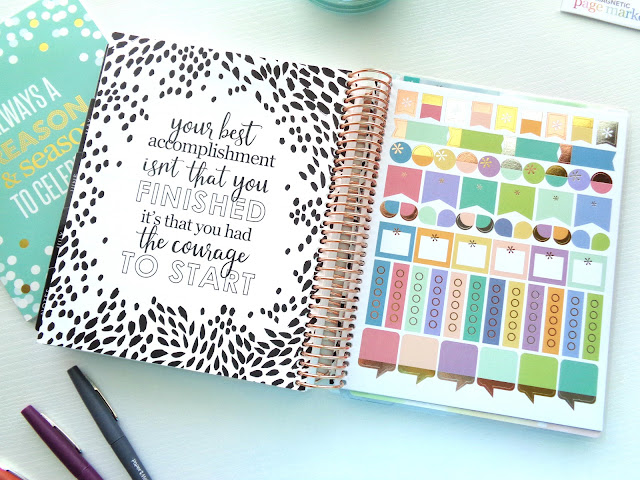 ALWAYS A
REASON
& season
TO CELE
your best
accomplishment
isnt that you
FINISHED
it's that you had
the courage
TO START
MAGNETIC
page marke